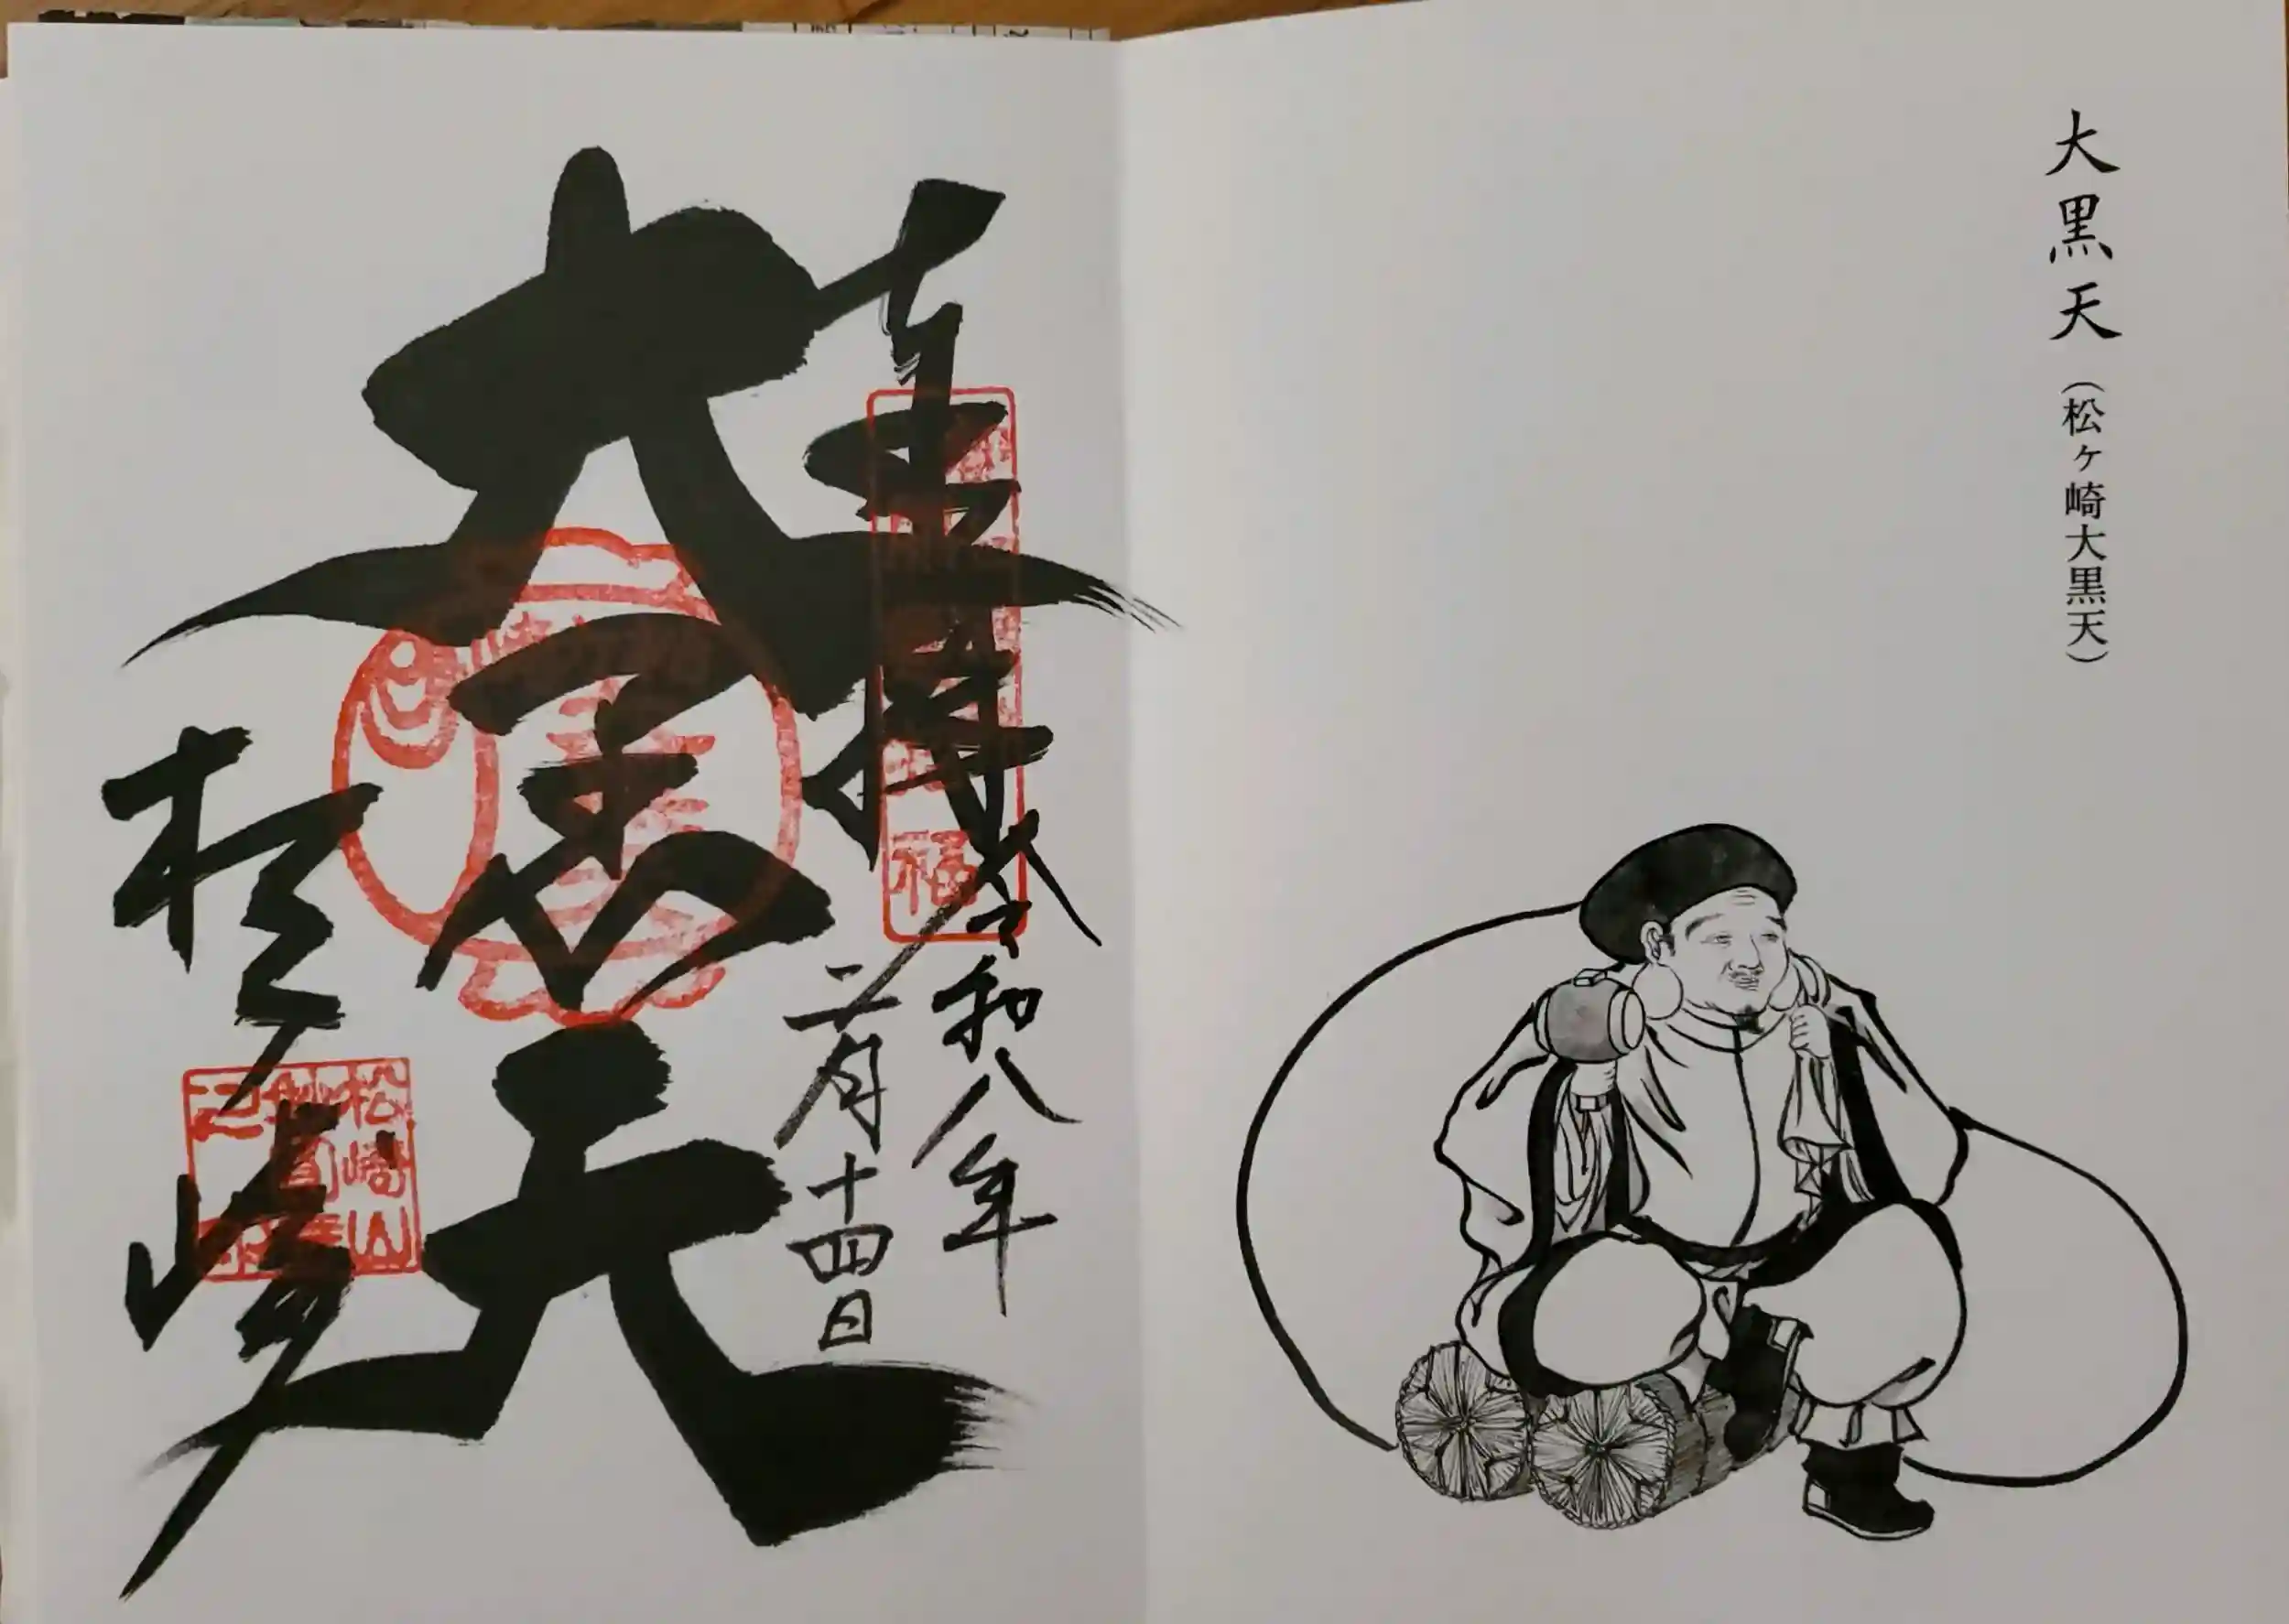 大黒天
(松ヶ崎大黒天)
奉拝
令和八年
二月十四日
大黒天
松ヶ崎
松崎山